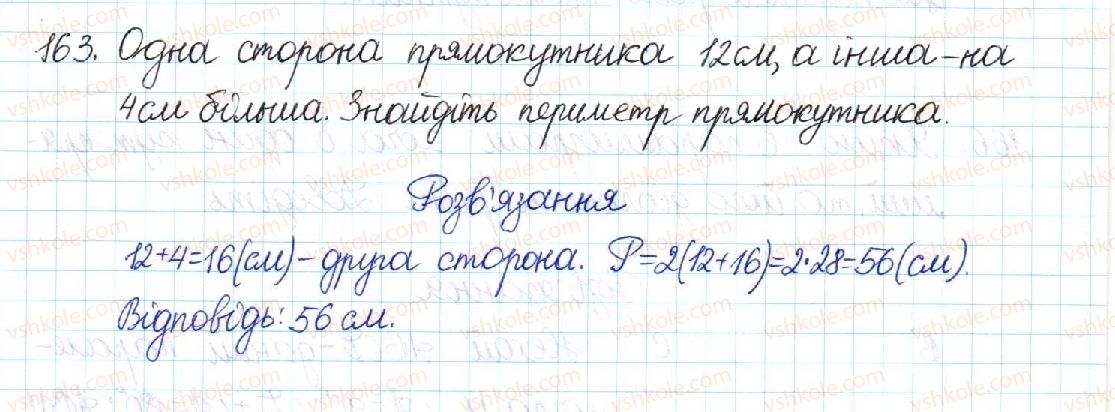 163. Одна сторона прямокутника 12см, а інша-на
4см більша. Знайдіть периметр прямокутника.
Розв'язання
12+4=16(см)-друга сторона. P=2(12+16)=2·28=56(см).
Відповідь: 56 см.